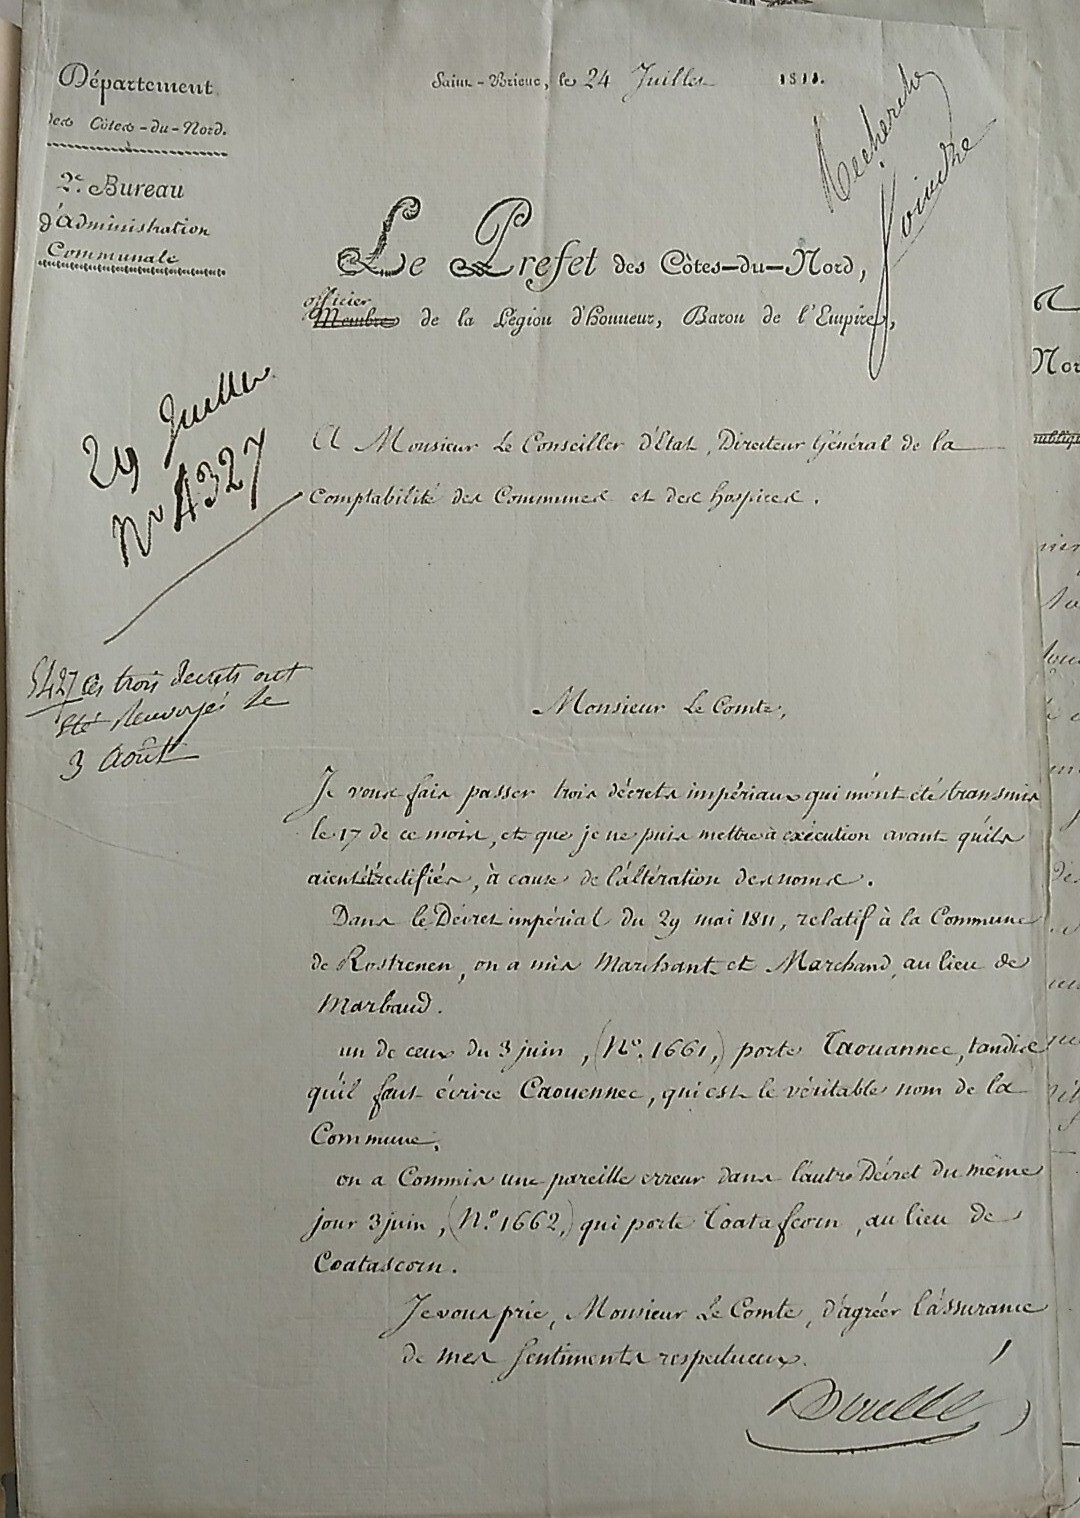 Département
des Côtes-du-Nord.
2e. Bureau
d'administration
Communale
Saint-Brieuc, le 24 Juillet 1811.
Recherche
Joindre
Le Prefet des Côtes-du-Nord,
officier
Membre de la Légion d'honneur, Baron de l'Empire,
29 Juillet
No 4327
A Monsieur Le Conseiller d'Etat, Directeur Général de la
Comptabilité des Communes et des hospices.
5427 Ces trois decrets ont
été renvoyés le
3 Août
Monsieur Le Comte,
Je vous fais passer trois décrets impériaux qui m'ont été transmis
le 17 de ce mois, et que je ne puis mettre à exécution avant qu'ils
aient été rectifiés, à cause de l'altération des noms.
Dans le Décret impérial du 29 mai 1811, relatif à la Commune
de Rostrenen, on a mis Marchant et Marchand, au lieu de
Marbaud.
un de ceux du 3 juin, (No. 1661,) porte Taouannec, tandis
qu'il faut écrire Caouennec, qui est le véritable nom de la
Commune.
on a Commis une pareille erreur dans l'autre Décret du même
jour 3 juin, (No. 1662,) qui porte Toatafcorn, au lieu de
Coatascorn.
Je vous prie, Monsieur Le Comte, d'agréer l'assurance
de mes sentiments respectueux.
Boullé